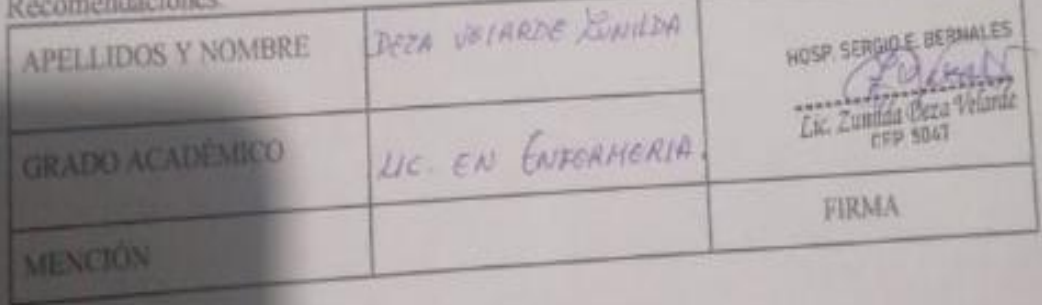 Recomendaciones
APELLIDOS Y NOMBRE
DEZA VELARDE ZUNILDA
HOSP. SERGIO E. BERNALES
Lic. Zunilda Deza Velarde
CEP 5047
GRADO ACADÉMICO
LIC. EN ENFERMERIA.
FIRMA
MENCIÓN